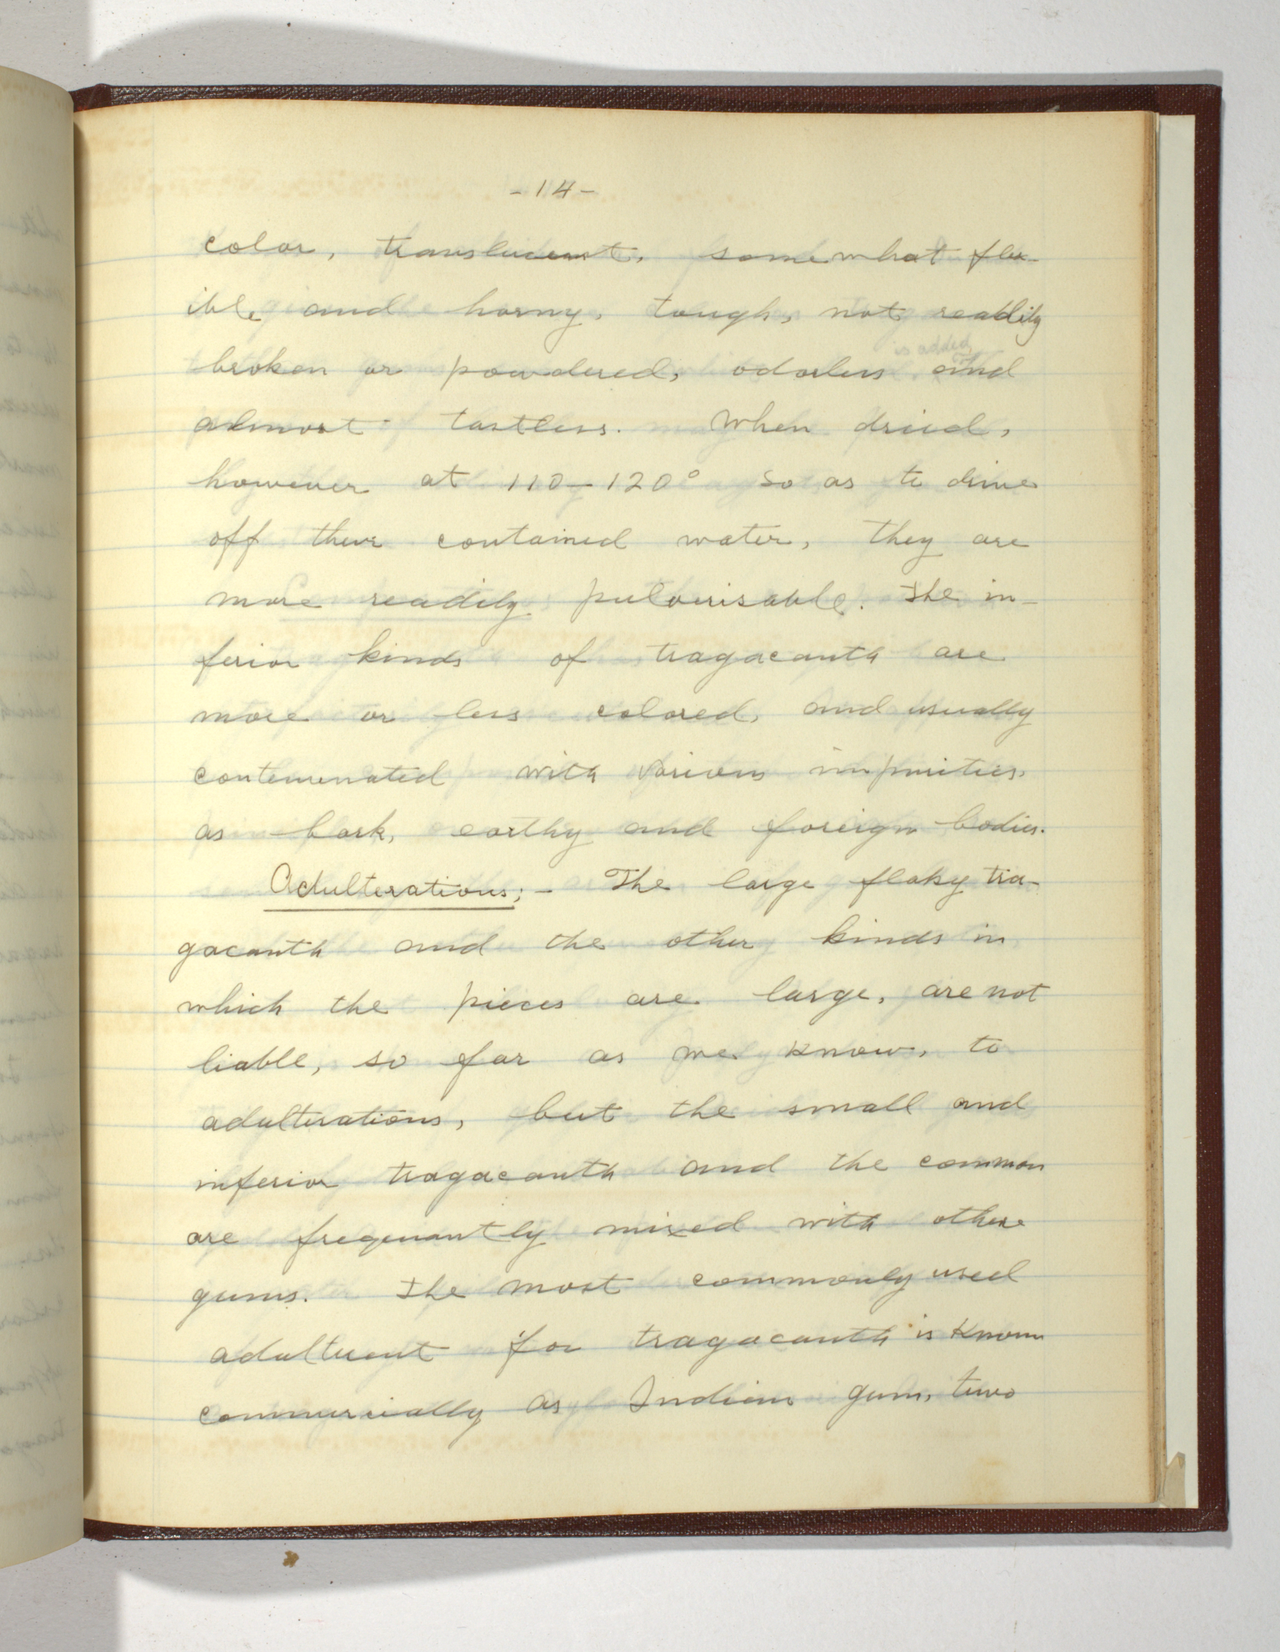 -14-
color, translucent, somewhat flex-
ible and horny, tough, not readily
broken or powdered, odorless and
almost tastless. When dried,
however at 110-120° so as to drive
off their contained water, they are
more readily pulverisable. The in-
ferior kinds of tragacanth are
more or less colored, and usually
contemenated with various impurities,
as bark, earthy and foreign bodies.
Adulterations;- The large flaky tra-
gacanth and the other kinds in
which the pieces are large, are not
liable, so far as we know, to
adulterations, but the small and
inferior tragacanth and the common
are freqenantly mixed with other
gums. The most commonly used
adulterent for tragacanth is known
commercially as Indian gum, two